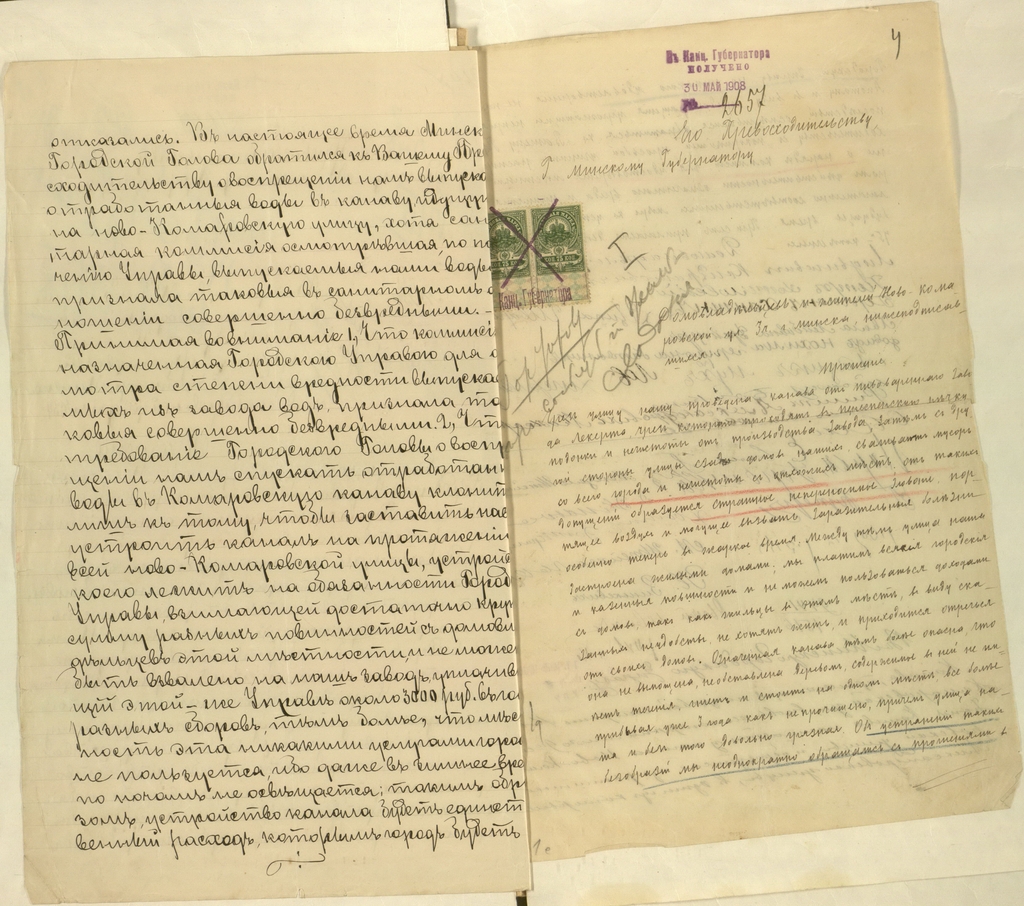 отказались. Въ настоящее время Минск
Городской Голова обратился къ Вашему Пре
сходительству о воспрещеніи намъ выпуска
отработанныя воды въ канаву идущую
на Ново-Комаровскую улицу, хотя сан
тарная коммисія осмотрѣвшая, по по
ченію Управы, выпускаемыя нами воды
признала таковыя въ санитарномъ о
ношеніи совершенно безвредными. –
Принимая во вниманіе 1, Что коммисі
назначенная Городскою Управою для о
мотра степени вредности выпуска
мыхъ изъ завода водъ, признала та
ковыя совершенно безвредными. 2, Что
требованіе Городского Головы о воспр
щеніи намъ спускать отработанн
воды въ Комаровскую канаву клонит
лишь къ тому, чтобы заставить нас
устроить каналъ на протяженіи
всей Ново-Комаровской улицы, устрой
коего лежитъ на обязанности Город
Управы, взимающей достаточно круп
сумму разныхъ повинностей съ домовл
дѣльцевъ этой мѣстности, и не може
быть взвалено на нашъ заводъ, уплачив
щій этой-же Управѣ около 3000 руб. въ го
разныхъ сборовъ, тѣмъ болѣе, что мѣс
ность эта никакими услугами горо
не пользуется, ибо даже въ зимнее вре
по ночамъ не освѣщается; такимъ обр
зомъ, устройство канала будетъ единст
венный расходъ, которымъ городъ будетъ
4
Въ Канц. Губернатора
ПОЛУЧЕНО
30 МАЙ 1908
№ 2657
Его Превосходительству
Г. Минскому Губернатору
Канц. Губернатора
I
Домовладѣльцевъ и жителей Ново-кома
ровской ул. Зг. минска, нижеподписав
шихся
Прошеніе
Чрезъ улицу нашу проведена канава отъ пивовареннаго Заво
да Лекерта, чрезъ которую проводятъ въ
помои и нечистоты отъ производства Завода. Затѣмъ съ дру
гой стороны улицы сзади домовъ нашихъ сваливаютъ мусоръ
со всего города и нечистоты съ отхожихъ мѣстъ, отъ такихъ
допущеній образуется страшное непереносимое Зловоніе, пор
тящее воздухъ и могущее вызвать Заразительныя болѣзни
особенно теперь въ жаркое время. Между тѣмъ улица наша
Застроена жилыми домами, мы платимъ всякія городскія
и казенныя повинности и не можемъ пользоваться доходами
съ домовъ, такъ какъ жильцы въ этомъ мѣстѣ, въ виду ска
занныхъ неудобствъ, не хотятъ жить, и приходится отречься
отъ своихъ домовъ. Означенная канава тѣмъ болѣе опасна, что
она не вымощена, не обставлена деревомъ, содержимое въ ней не им
ѣетъ теченія, гніетъ и стоитъ на одномъ мѣстѣ все болѣе
прибывая, уже 3 года какъ не прочищено, причемъ улица на
ша и безъ того довольно грязная. Объ устраненіи такихъ
безобразій мы неоднократно обращались съ прошеніями въ